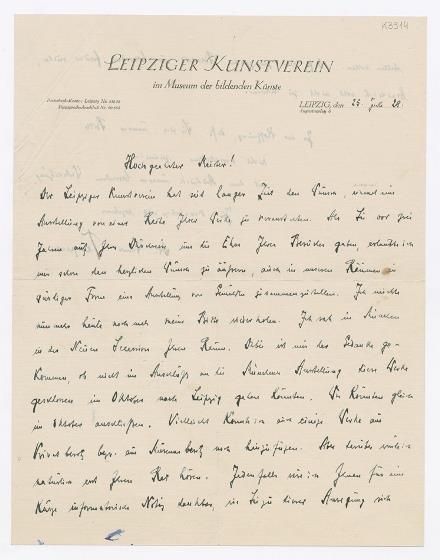 K3314
LEIPZIGER KUNSTVEREIN
im Museum der bildenden Künste
LEIPZIG, den 25. Juli 28.
Hochgeehrter Meister!
Der Leipziger Kunstverein hat seit langer Zeit den Wunsch, einmal eine
Ausstellung von einer Reihe Ihrer Werke zu veranstalten. Als Sie vor zwei
Jahren auf Ihrer Durchreise uns die Ehre Ihres Besuches gaben, erlaubte ich
mir schon den herzlichen Wunsch zu äußern, auch in unseren Räumen in
günstiger Form eine Ausstellung von Gemälden zusammenzustellen. Ich möchte
nun mehr heute noch mal meine Bitte wiederholen. Ich sah in München
in der Neuen Secession Ihren Raum. Dabei ist mir der Gedanke ge-
kommen, ob nicht im Anschluß an die Münchner Ausstellung diese Werke
geschlossen im Oktober nach Leipzig gehen könnten. Wir könnten gleich
im Oktober anschließen. Vielleicht könnten wir einige Werke aus
Privatbesitz bezw. aus Museumsbesitz noch hinzufügen. Aber darüber würden
natürlich erst Ihren Rat hören. Jedenfalls wäre ich Ihnen für eine
kurze informatorische Notiz dankbar, wie Sie zu dieser Anregung sich